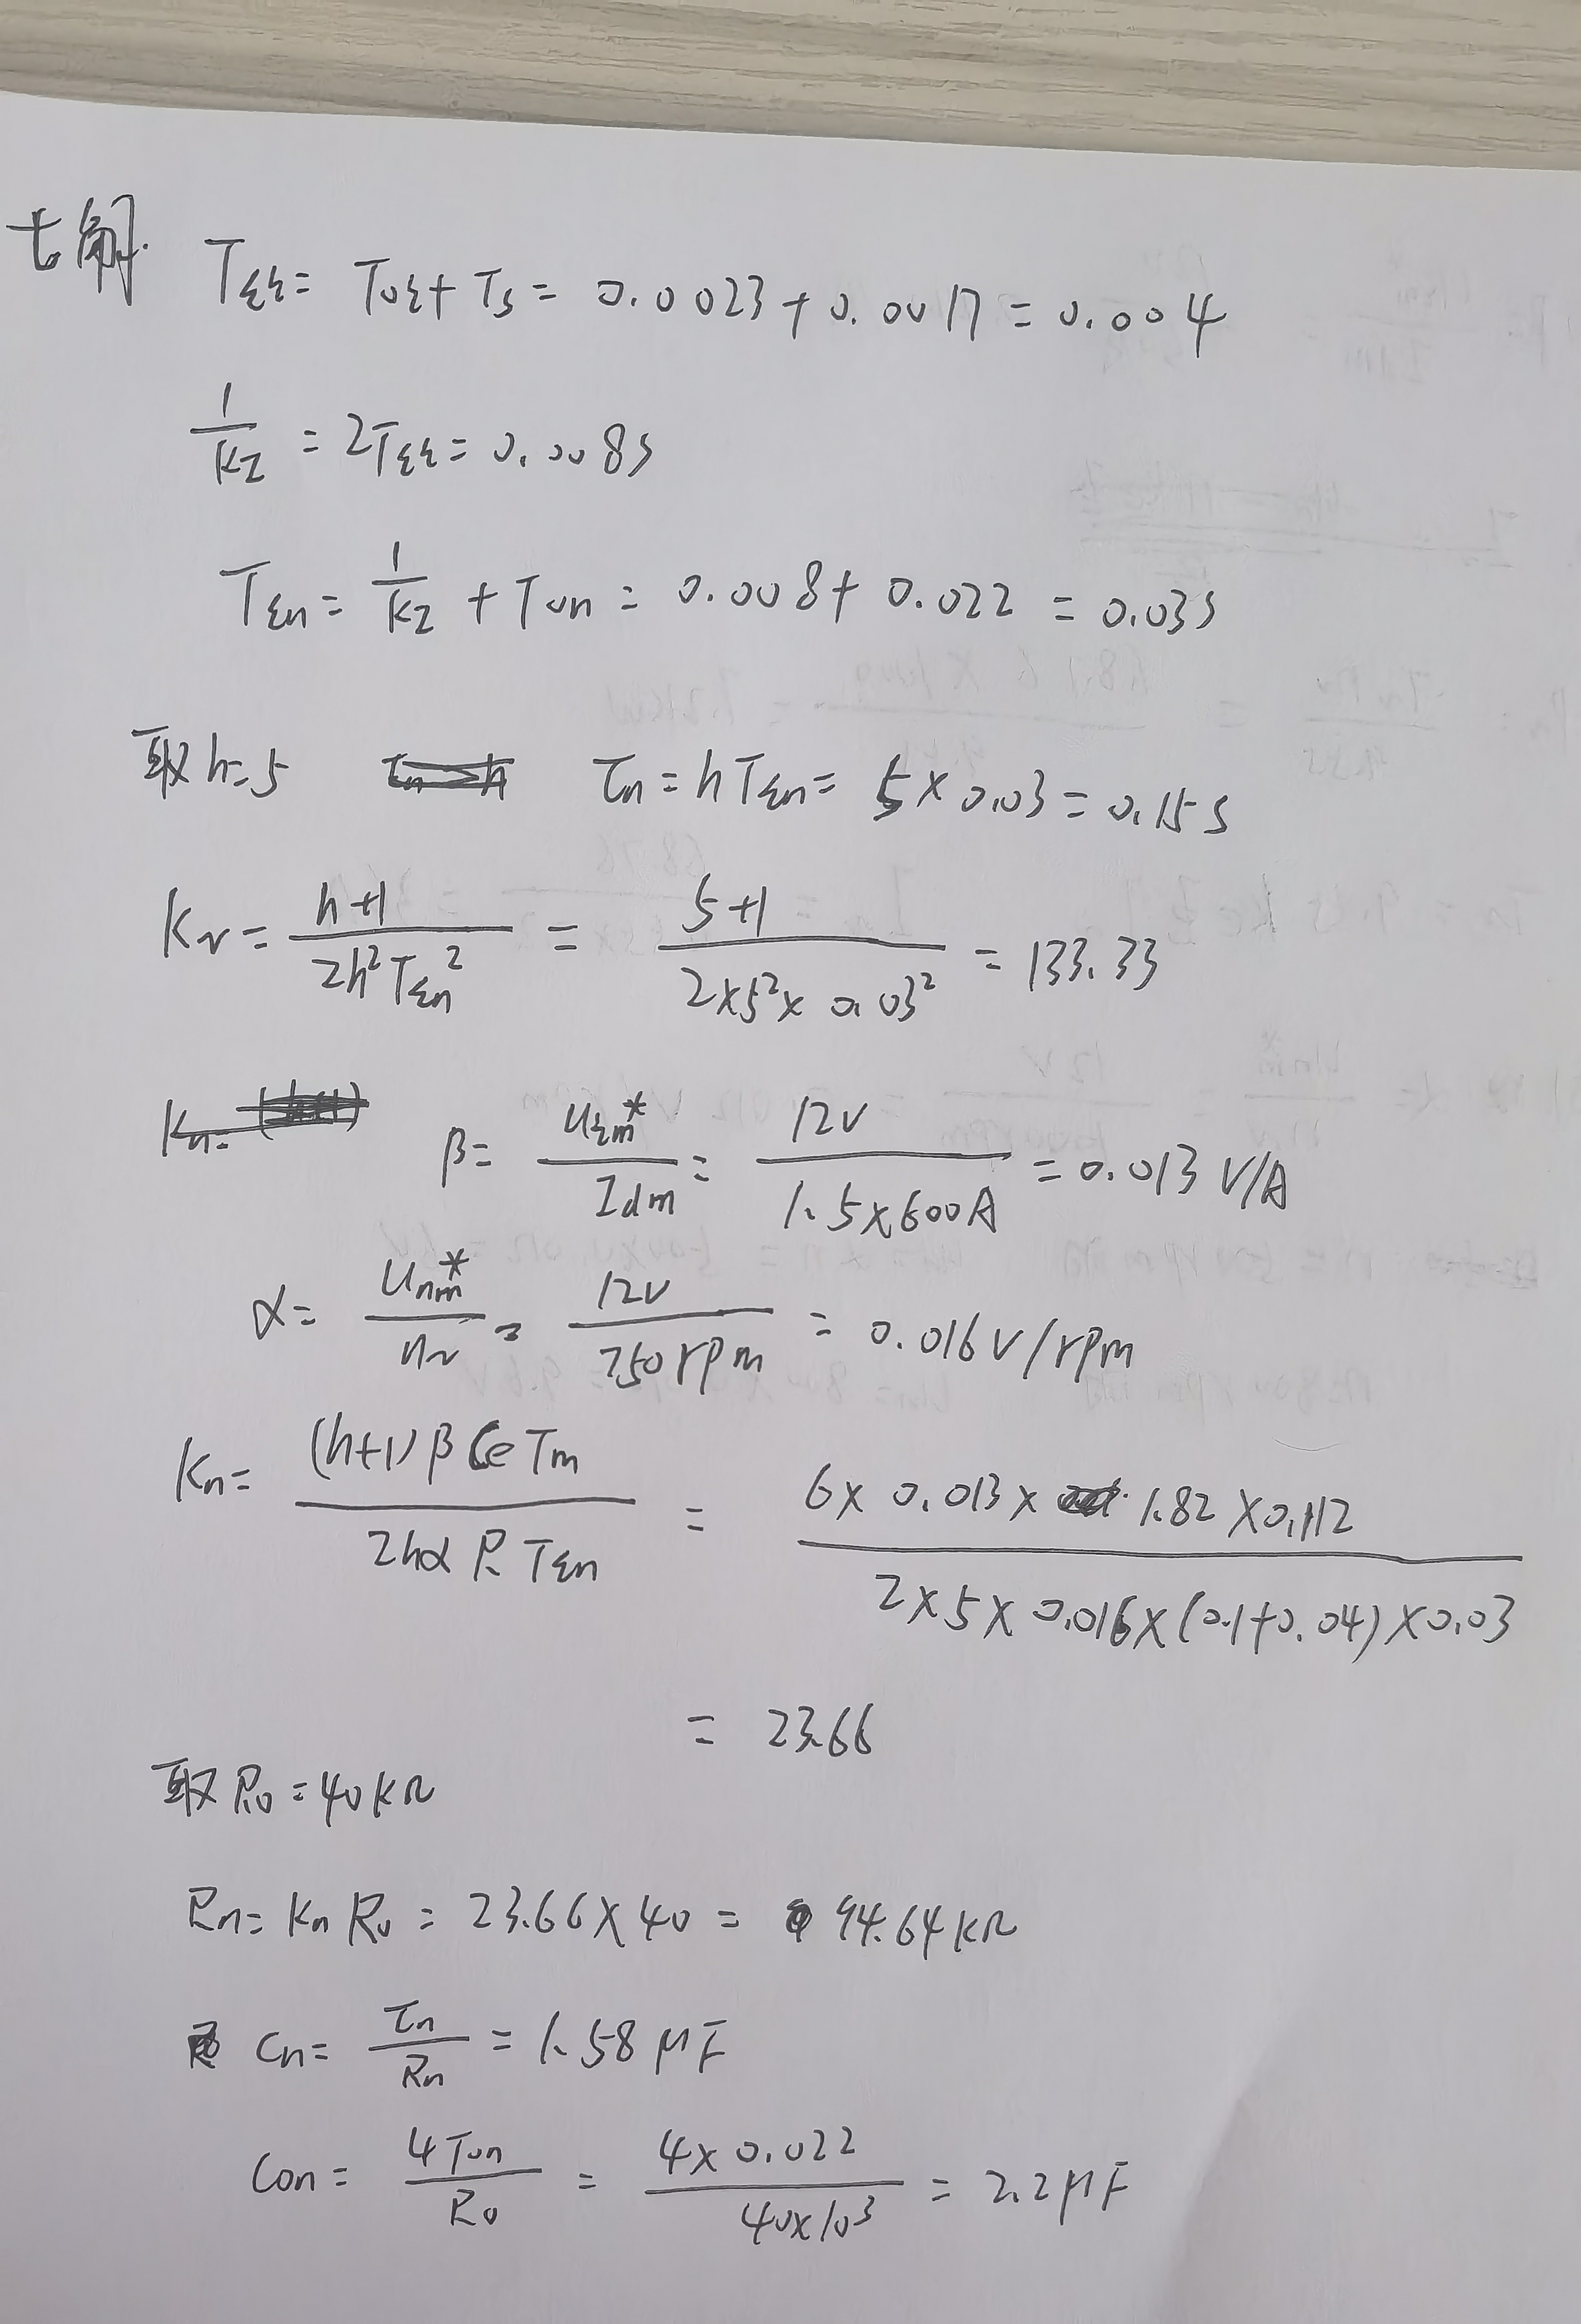 七解. TΣi = Toi + Ts = 0.0023 + 0.0017 = 0.004
1/KI = 2TΣi = 0.008s
TΣn = 1/KI + Ton = 0.008 + 0.022 = 0.03s
取h=5 τn = hTΣn = 5×0.03 = 0.15s
KN = (h+1)/(2h²TΣn²) = (5+1)/(2×5²×0.03²) = 133.33
Kn=
β = Uim*/Idm = 12V/(1.5×600A) = 0.013 V/A
α = Unm*/nN = 12V/750rpm = 0.016V/rpm
Kn = (h+1)βCeTm/(2hαRTΣn) = (6×0.013×1.82×0.112)/(2×5×0.016×(0.1+0.04)×0.03)
= 23.66
取R0=40KΩ
Rn = KnR0 = 23.66×40 = 94.64KΩ
Cn = τn/Rn = 1.58μF
Con = 4Ton/R0 = 4×0.022/(40×10³) = 2.2μF